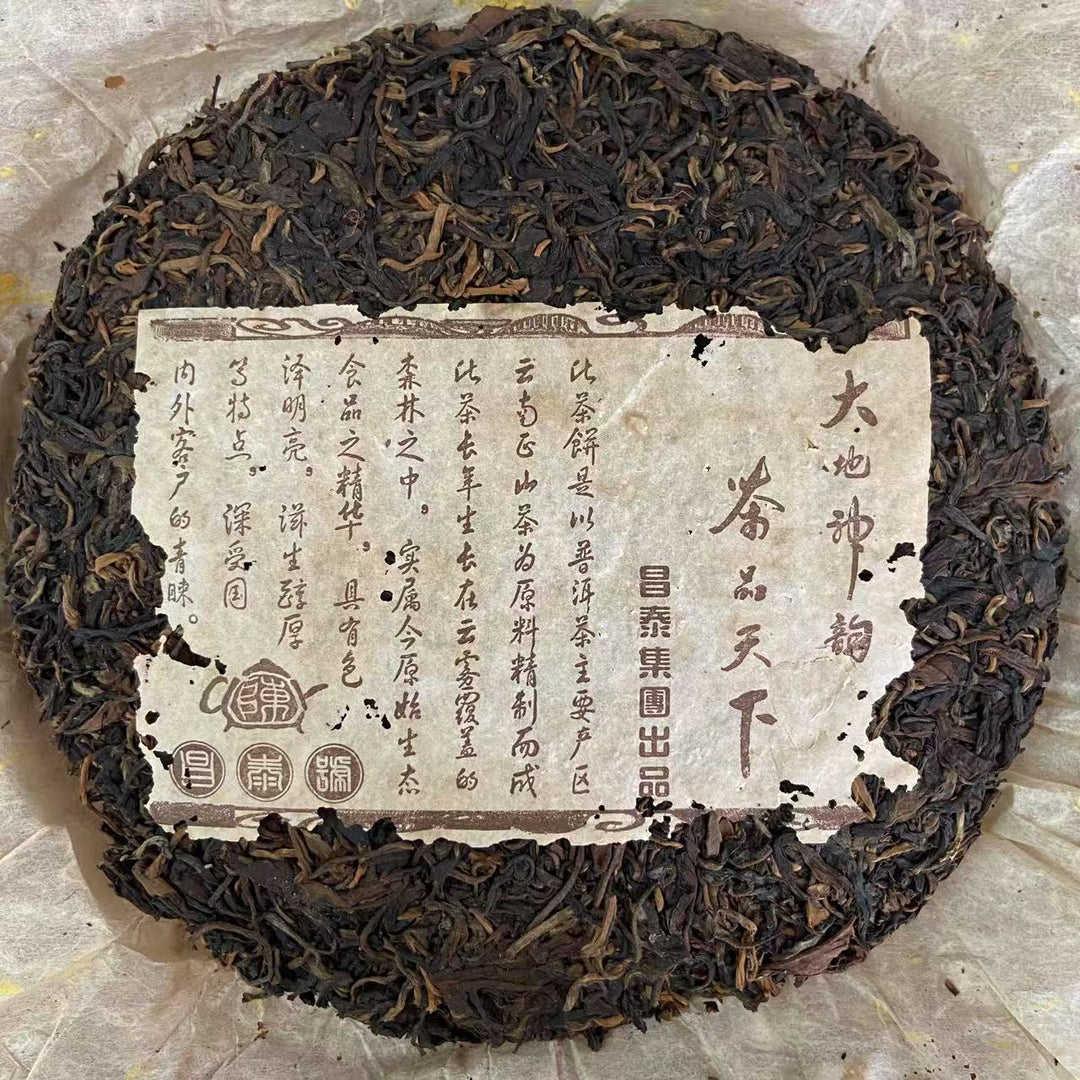 大地神韵
茶品天下
昌泰集團出品
此茶餅是以普洱茶主要产区
云南正山茶为原料精制而成
此茶长年生长在云雾覆盖的
森林之中。实属今原始生态
食品之精华，具有色
泽明亮，滋生醇厚
等特点。深受国
内外客户的青睐。
陳
昌泰號